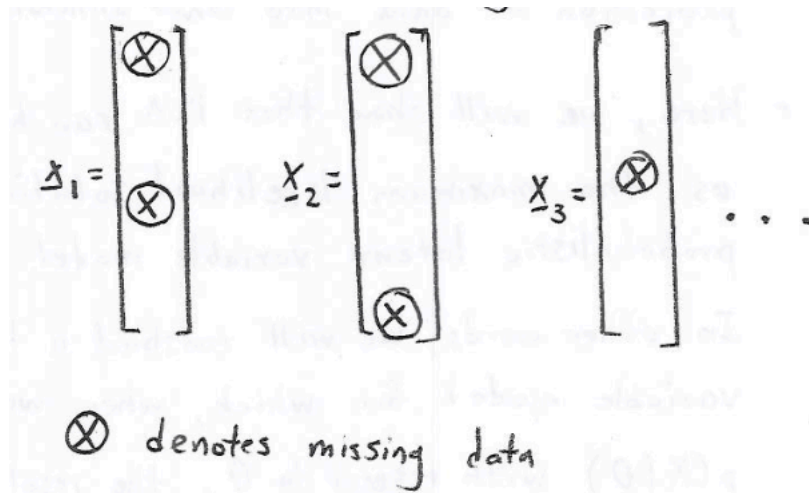 x₁ = [⊗ ⊗] x₂ = [⊗ ⊗] x₃ = [⊗] ...
⊗ denotes missing data